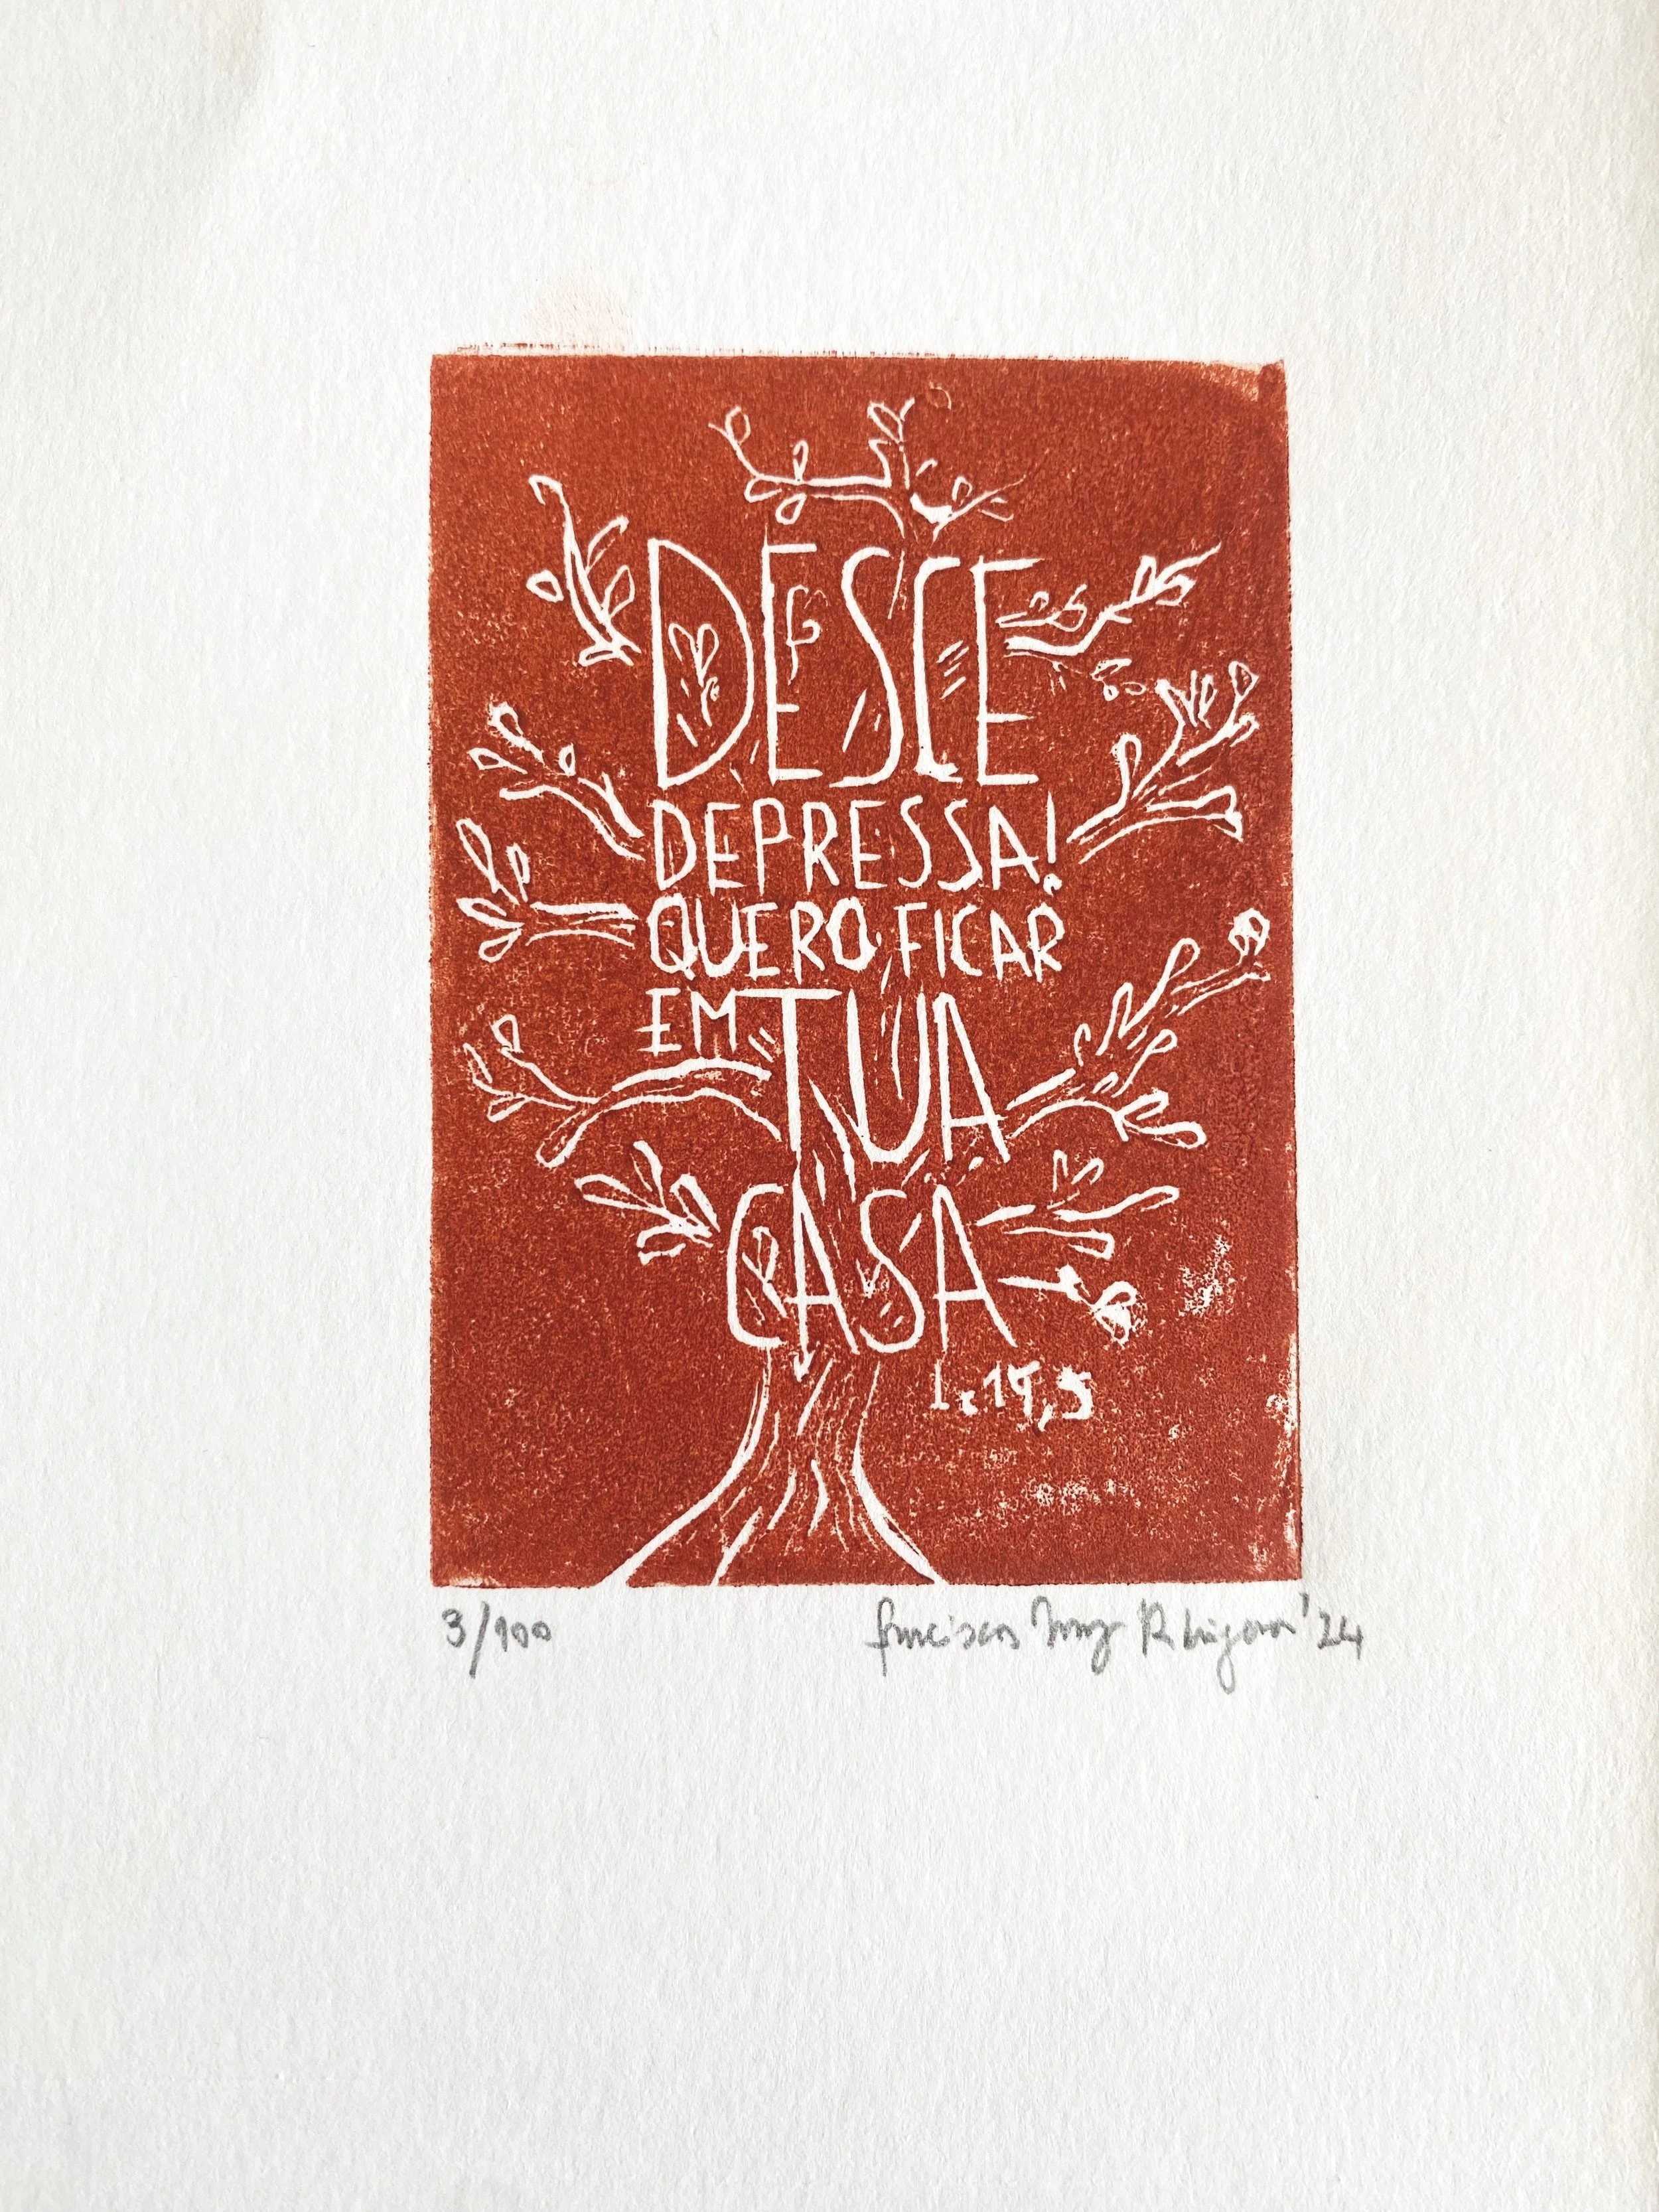 DESCE
DEPRESSA!
QUERO FICAR
EM TUA
CASA
Lc 19,5
3/100
'24